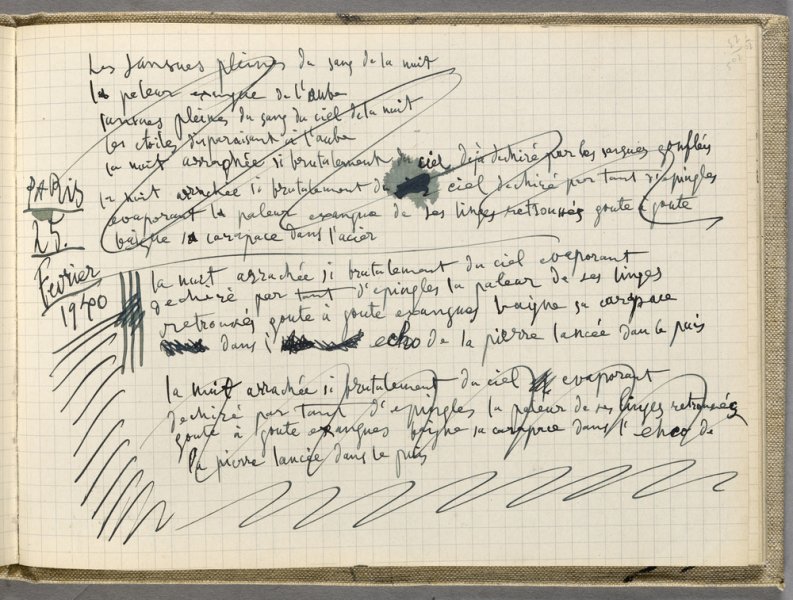 Les sansues pleines du sang de la nuit
la paleur exangue de l'aube
sansues pleines du sang du ciel de la nuit
les etoiles disparaisant à l'aube
la nuit arraghée si brutalement du ciel dejà dechiré par les sasgues gonflées
la nuit arrachée si brutalement du ciel dechiré par tant d'epingles
evaporant la paleur exangue de ses linges retrouvés goute à goute
baigne sa carapace dans l'acier
PARis
25.
Fevrier
1940
la nuit arrachée si brutalement du ciel evaporant
dechiré par tant d'epingles la paleur de ses linges
retrouvés goute à goute exangues baigne sa carapace
dans l' echo de la pierre lancée dans le puis
la nuit arrachée si brutalement du ciel evaporant
dechiré par tant d'epingles la paleur de ses linges retrouvés
goute à goute exangues baigne sa carapace dans l'encho de
la pierre lancée dans le puis